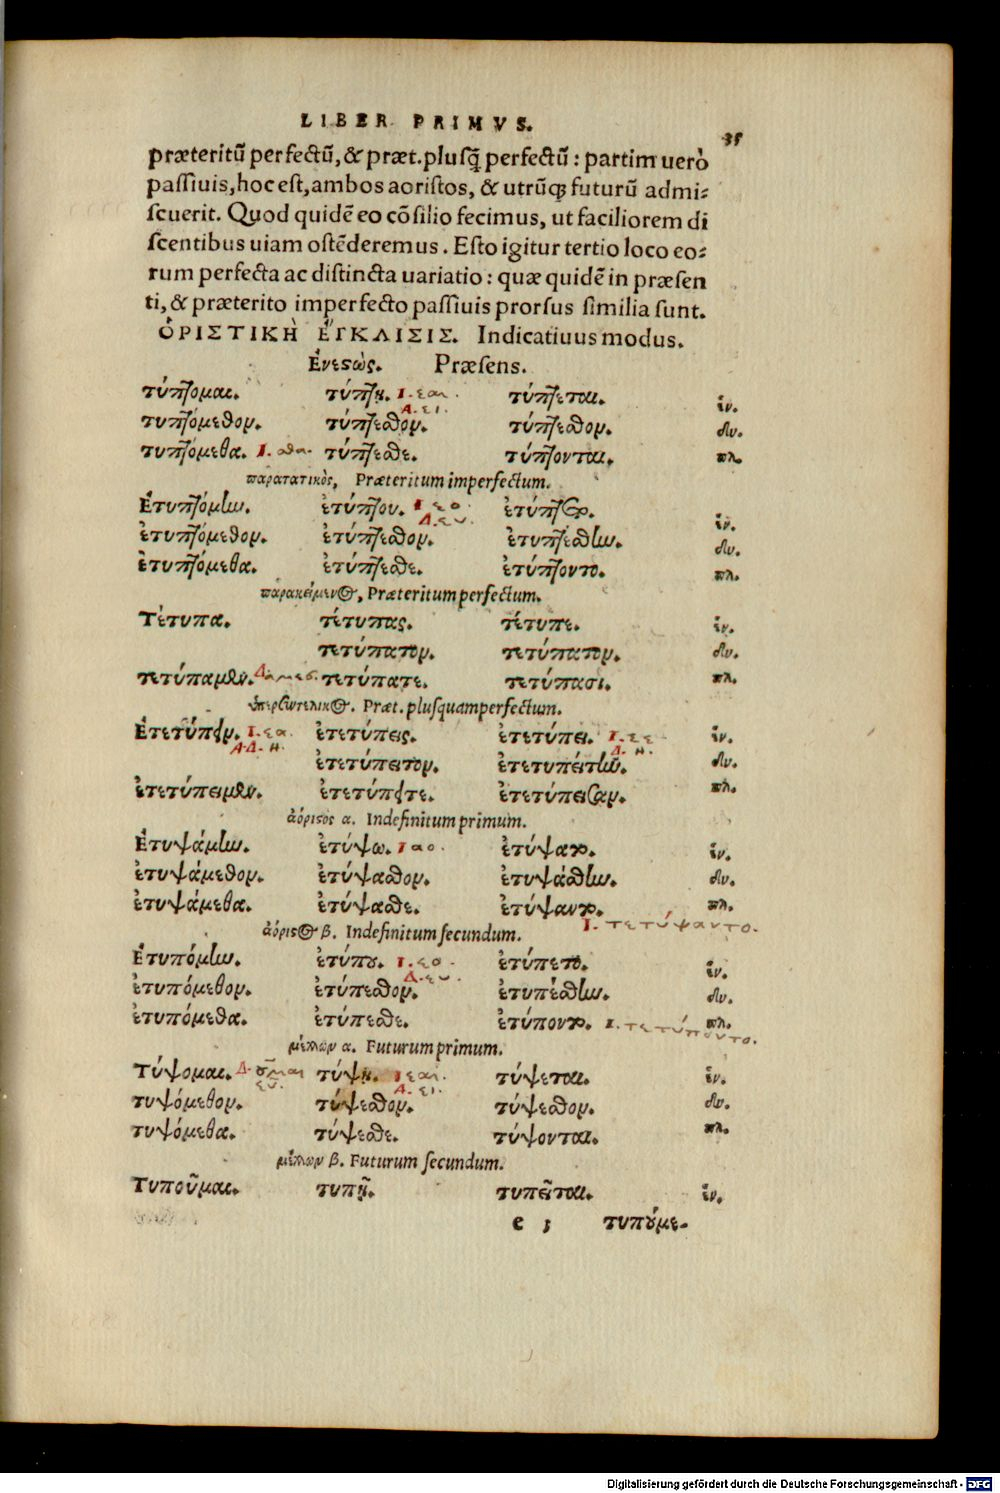 LIBER PRIMVS.
35
præteritū perfectū, & præt. plusq̄ perfectū : partim uerò
passiuis, hoc est, ambos aoristos, & utrūq; futurū admi-
scuerit. Quod quidē eo cōsilio fecimus, ut faciliorem di
scentibus uiam ostēderemus. Esto igitur tertio loco eo-
rum perfecta ac distincta uariatio : quæ quidē in præsen
ti, & præterito imperfecto passiuis prorsus similia sunt.
ὉΡΙΣΤΙΚῊ ἜΓΚΛΙΣΙΣ. Indicatiuus modus.
Ἐνεϛώς. Præsens.
τύπτομαι. τύπτῃ. Ι. εαι. τύπτεται. ἑν.
Α. ει.
τυπτόμεθον. τύπτεσθον. τύπτεσθον. δυ.
τυπτόμεθα. Ι. σθα. τύπτεσθε. τύπτονται. πλ.
παρατατικὸς, Præteritum imperfectum.
Ἐτυπτόμην. ἐτύπτου. Ι εο. ἐτύπτετο. ἑν.
Δ. ευ.
ἐτυπτόμεθον. ἐτύπτεσθον. ἐτυπτέσθην. δυ.
ἐτυπτόμεθα. ἐτύπτεσθε. ἐτύπτοντο. πλ.
παρακείμενος, Præteritum perfectum.
Τέτυπα. τέτυπας. τέτυπε. ἑν.
τετύπατον. τετύπατον. δυ.
τετύπαμεν. Δ. αμες. τετύπατε. τετύπασι. πλ.
ὑπερσυντελικος. Præt. plusquamperfectum.
Ἐτετύπειν. Ι. εα. ἐτετύπεις. ἐτετύπει. Ι. εε ἑν.
Α. Δ. η. Δ. η.
ἐτετύπειτον. ἐτετυπείτην. δυ.
ἐτετύπειμεν. ἐτετύπειτε. ἐτετύπεισαν. πλ.
ἀόριϛος α. Indefinitum primum.
Ἐτυψάμην. ἐτύψω. Ι αο. ἐτύψατο. ἑν.
ἐτυψάμεθον. ἐτύψασθον. ἐτυψάσθην. δυ.
ἐτυψάμεθα. ἐτύψασθε. ἐτύψαντο. πλ.
Ι. τετύψαντο.
ἀόριϛος β. Indefinitum secundum.
Ἐτυπόμην. ἐτύπου. Ι. εο. ἐτύπετο. ἑν.
Δ. ευ.
ἐτυπόμεθον. ἐτύπεσθον. ἐτυπέσθην. δυ.
ἐτυπόμεθα. ἐτύπεσθε. ἐτύποντο. Ι. τετύποντο. πλ.
μέλλων α. Futurum primum.
Τύψομαι. Δ. τύψῃ. Ι εαι. τύψεται. ἑν.
Α. ει.
τυψόμεθον. τύψεσθον. τύψεσθον. δυ.
τυψόμεθα. τύψεσθε. τύψονται. πλ.
μέλλων β. Futurum secundum.
Τυποῦμαι. τυπῇ. τυπεῖται. ἑν.
e 3 τυπούμε-
Digitalisierung gefördert durch die Deutsche Forschungsgemeinschaft - DFG